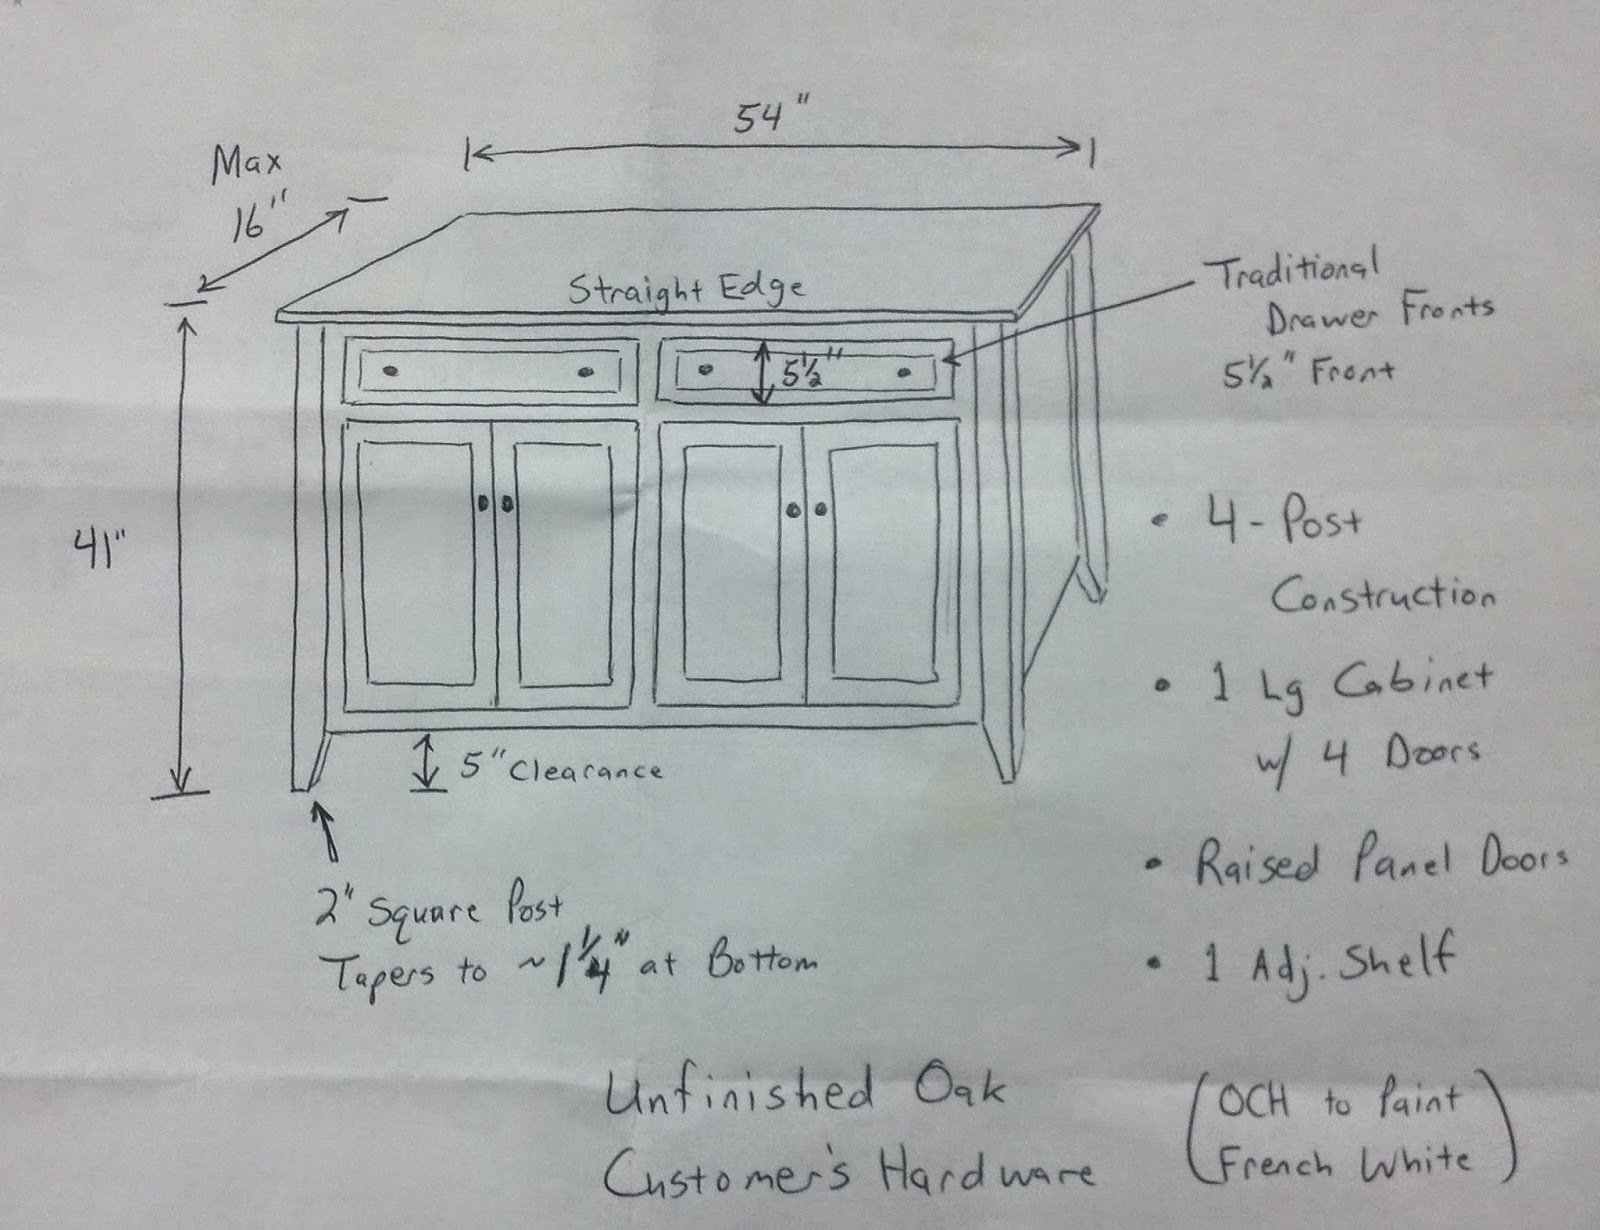 54"
Max
16"
Straight Edge
Traditional
Drawer Fronts
5½" Front
5½"
41"
• 4-Post
Construction
• 1 Lg Cabinet
w/ 4 Doors
5" Clearance
• Raised Panel Doors
2" Square Post
Tapers to ~1¼" at Bottom
• 1 Adj. Shelf
Unfinished Oak
Customer's Hardware
(OCH to Paint
French White)